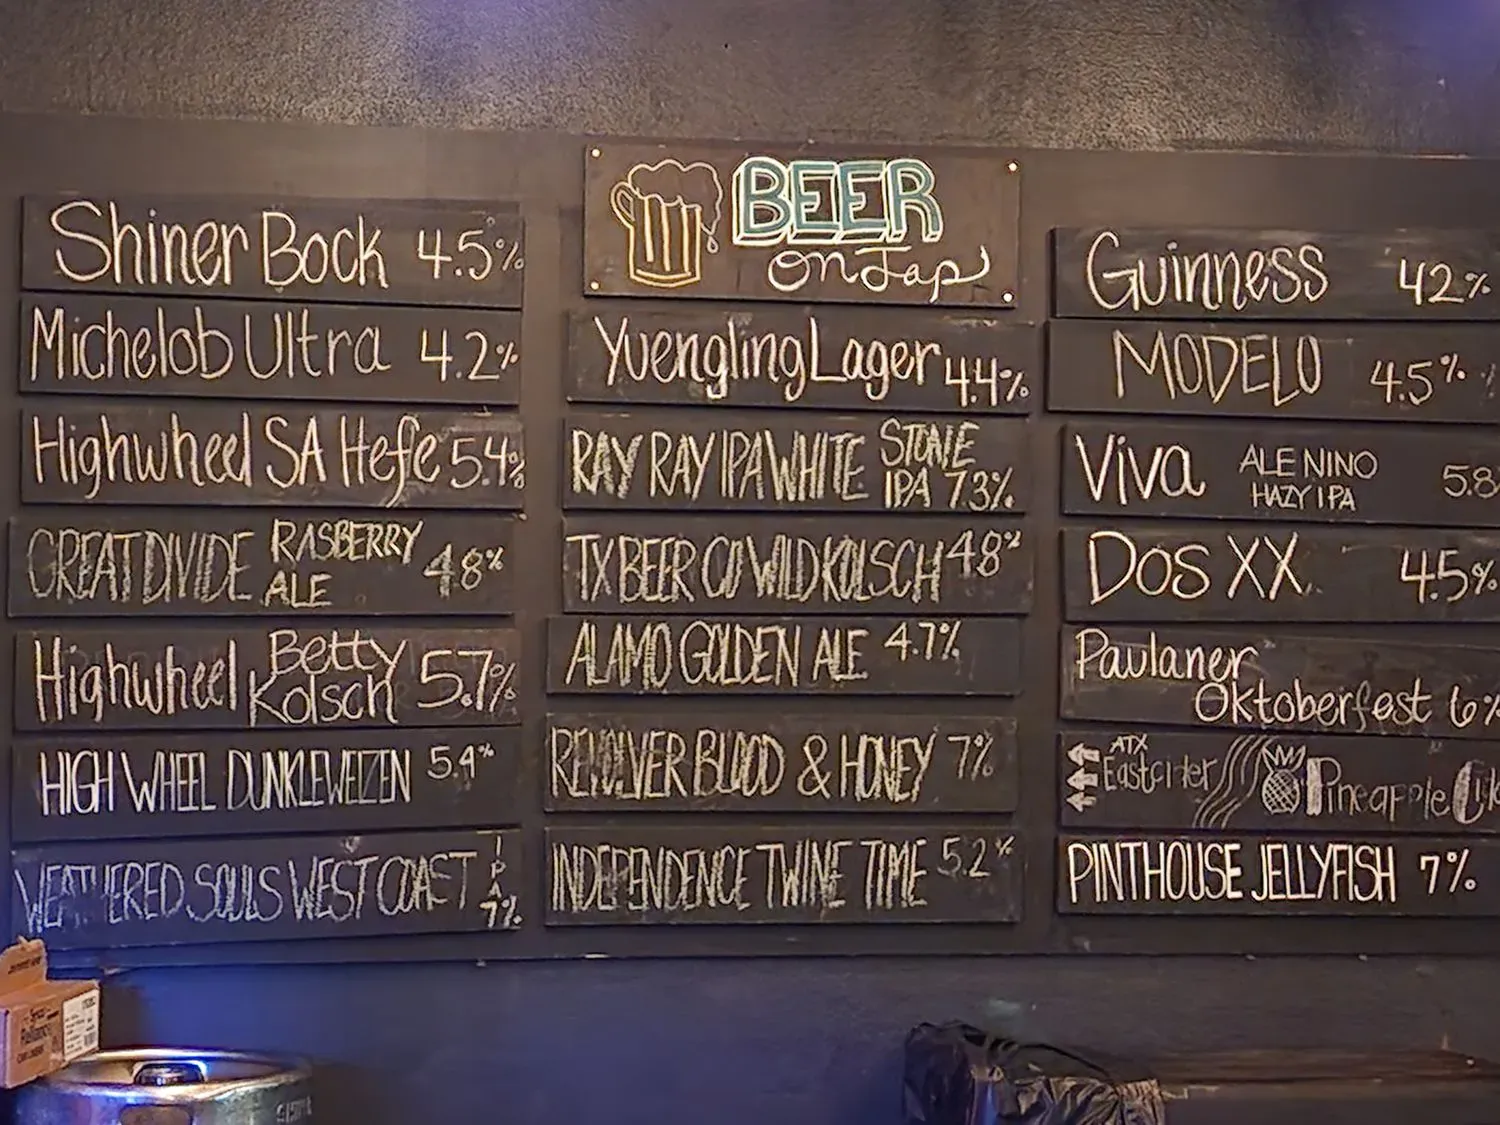 BEER
on Tap
Shiner Bock 4.5%
Michelob Ultra 4.2%
Highwheel SA Hefe 5.4%
GREAT DIVIDE RASBERRY ALE 48%
Highwheel Betty Kolsch 5.7%
HIGH WHEEL DUNKLEWEIZEN 5.4%
WEATHERED SOULS WEST COAST IPA 7%
Yuengling Lager 4.4%
RAY RAY IPA WHITE STONE IPA 7.3%
TX BEER CO WILD KOLSCH 48%
ALAMO GOLDEN ALE 4.7%
REVOLVER BLOOD & HONEY 7%
INDEPENDENCE TWINE TIME 5.2%
Guinness 42%
MODELO 4.5%
Viva ALE NINO HAZY IPA 5.8
DOS XX 45%
Paulaner
Oktoberfest 6%
ATX
Eastcider Pineapple
PINTHOUSE JELLYFISH 7%